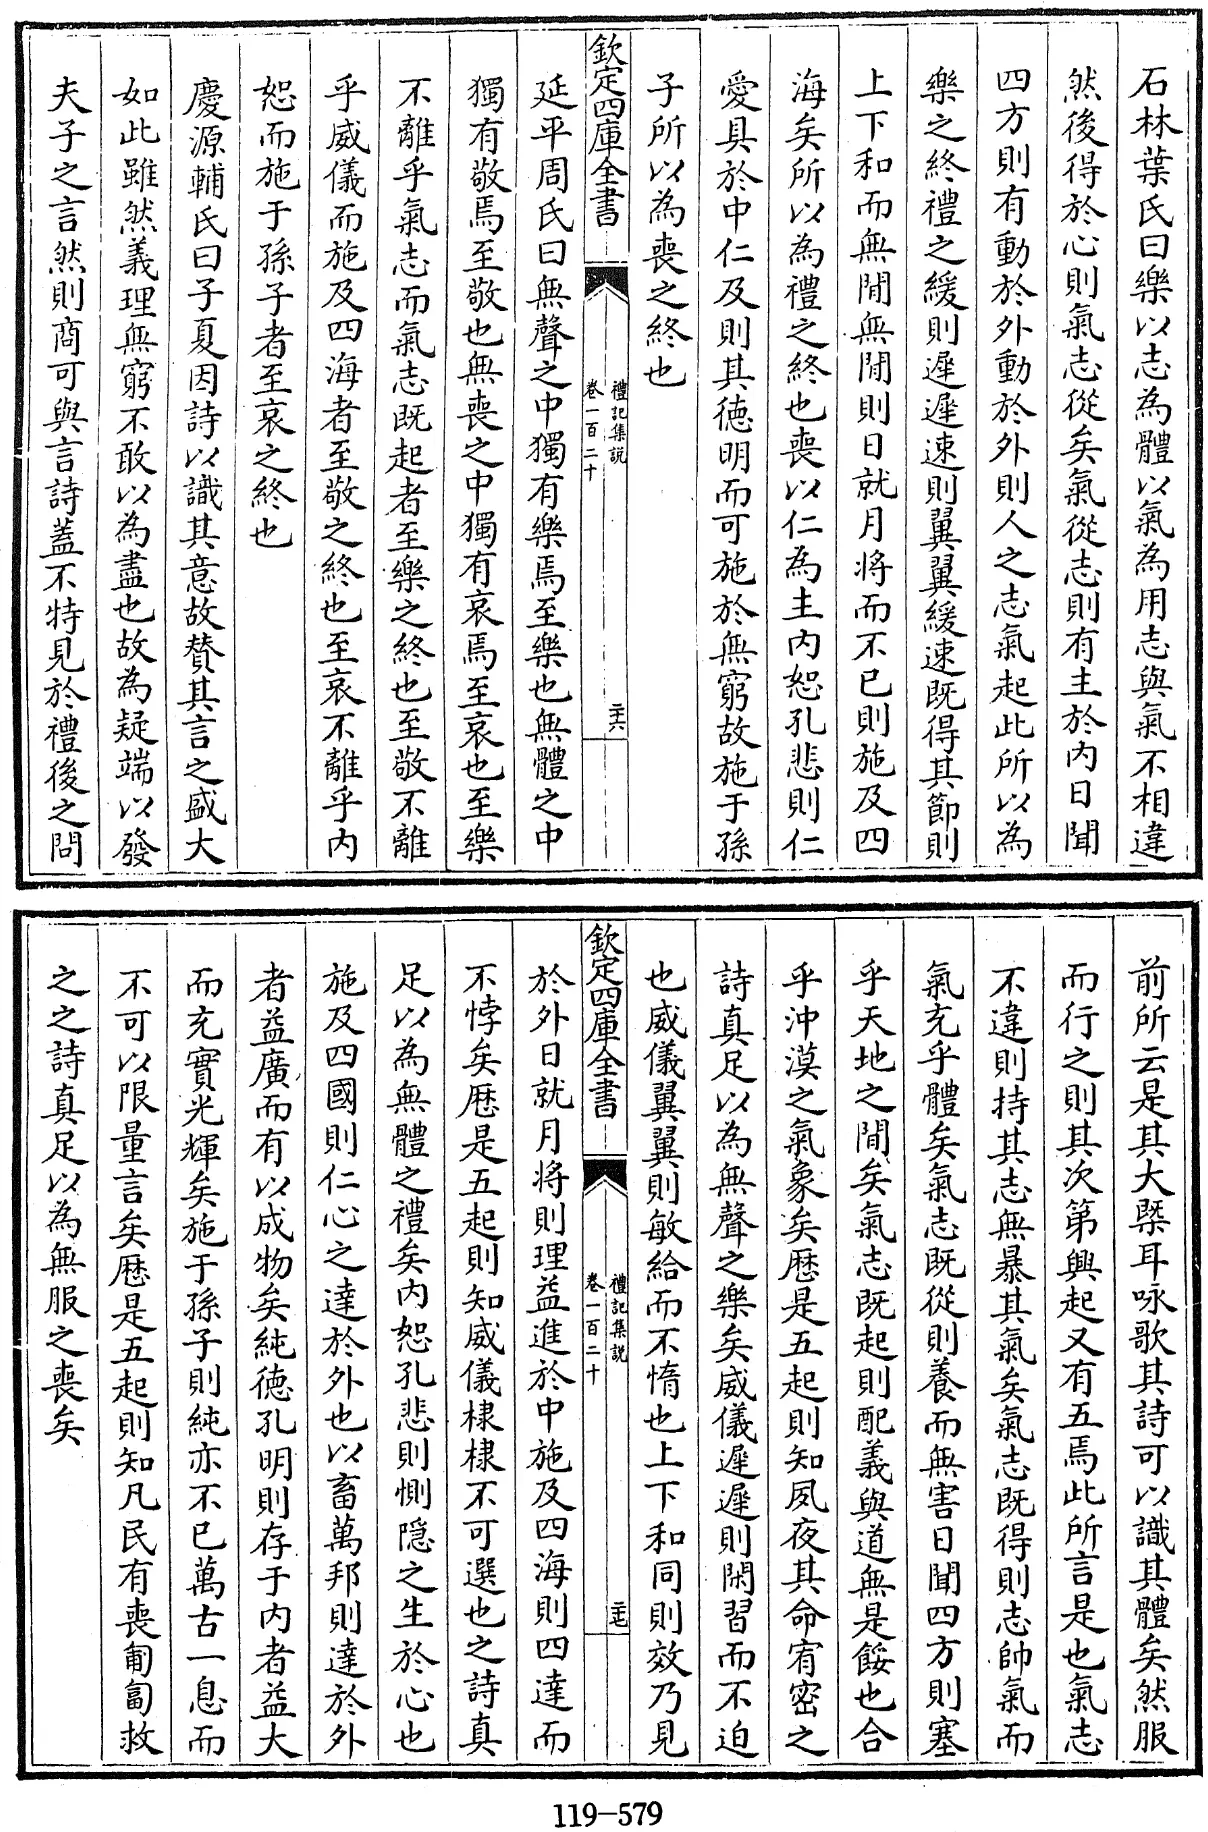 石林葉氏曰樂以志為體以氣為用志與氣不相違
然後得於心則氣志從矣氣從志則有主於内日聞
四方則有動於外動於外則人之志氣起此所以為
樂之終禮之緩則遲遲速則翼翼緩速既得其節則
上下和而無間無間則日就月將而不已則施及四
海矣所以為禮之終也喪以仁為主内恕孔悲則仁
愛具於中仁及則其徳明而可施於無窮故施于孫
子所以為喪之終也
欽定四庫全書
禮記集説
卷一百二十
二十六
延平周氏曰無聲之中獨有樂焉至樂也無體之中
獨有敬焉至敬也無喪之中獨有哀焉至哀也至樂
不離乎氣志而氣志既起者至樂之終也至敬不離
乎威儀而施及四海者至敬之終也至哀不離乎内
恕而施于孫子者至哀之終也
慶源輔氏曰子夏因詩以識其意故賛其言之盛大
如此雖然義理無窮不敢以為盡也故為疑端以發
夫子之言然則商可與言詩蓋不特見於禮後之問
前所云是其大槩耳咏歌其詩可以識其體矣然服
而行之則其次第興起又有五焉此所言是也氣志
不違則持其志無暴其氣矣氣志既得則志帥氣而
氣充乎體矣氣志既從則養而無害日聞四方則塞
乎天地之間矣氣志既起則配義與道無是餒也合
乎沖漠之氣象矣厯是五起則知夙夜其命宥密之
詩真足以為無聲之樂矣威儀遲遲則閑習而不迫
也威儀翼翼則敏給而不惰也上下和同則效乃見
欽定四庫全書
禮記集説
卷一百二十
二十七
於外日就月將則理益進於中施及四海則四達而
不悖矣厯是五起則知威儀棣棣不可選也之詩真
足以為無體之禮矣内恕孔悲則惻隠之生於心也
施及四國則仁心之達於外也以畜萬邦則達於外
者益廣而有以成物矣純徳孔明則存于内者益大
而充實光輝矣施于孫子則純亦不已萬古一息而
不可以限量言矣厯是五起則知凡民有喪匍匐救
之之詩真足以為無服之喪矣
119-579